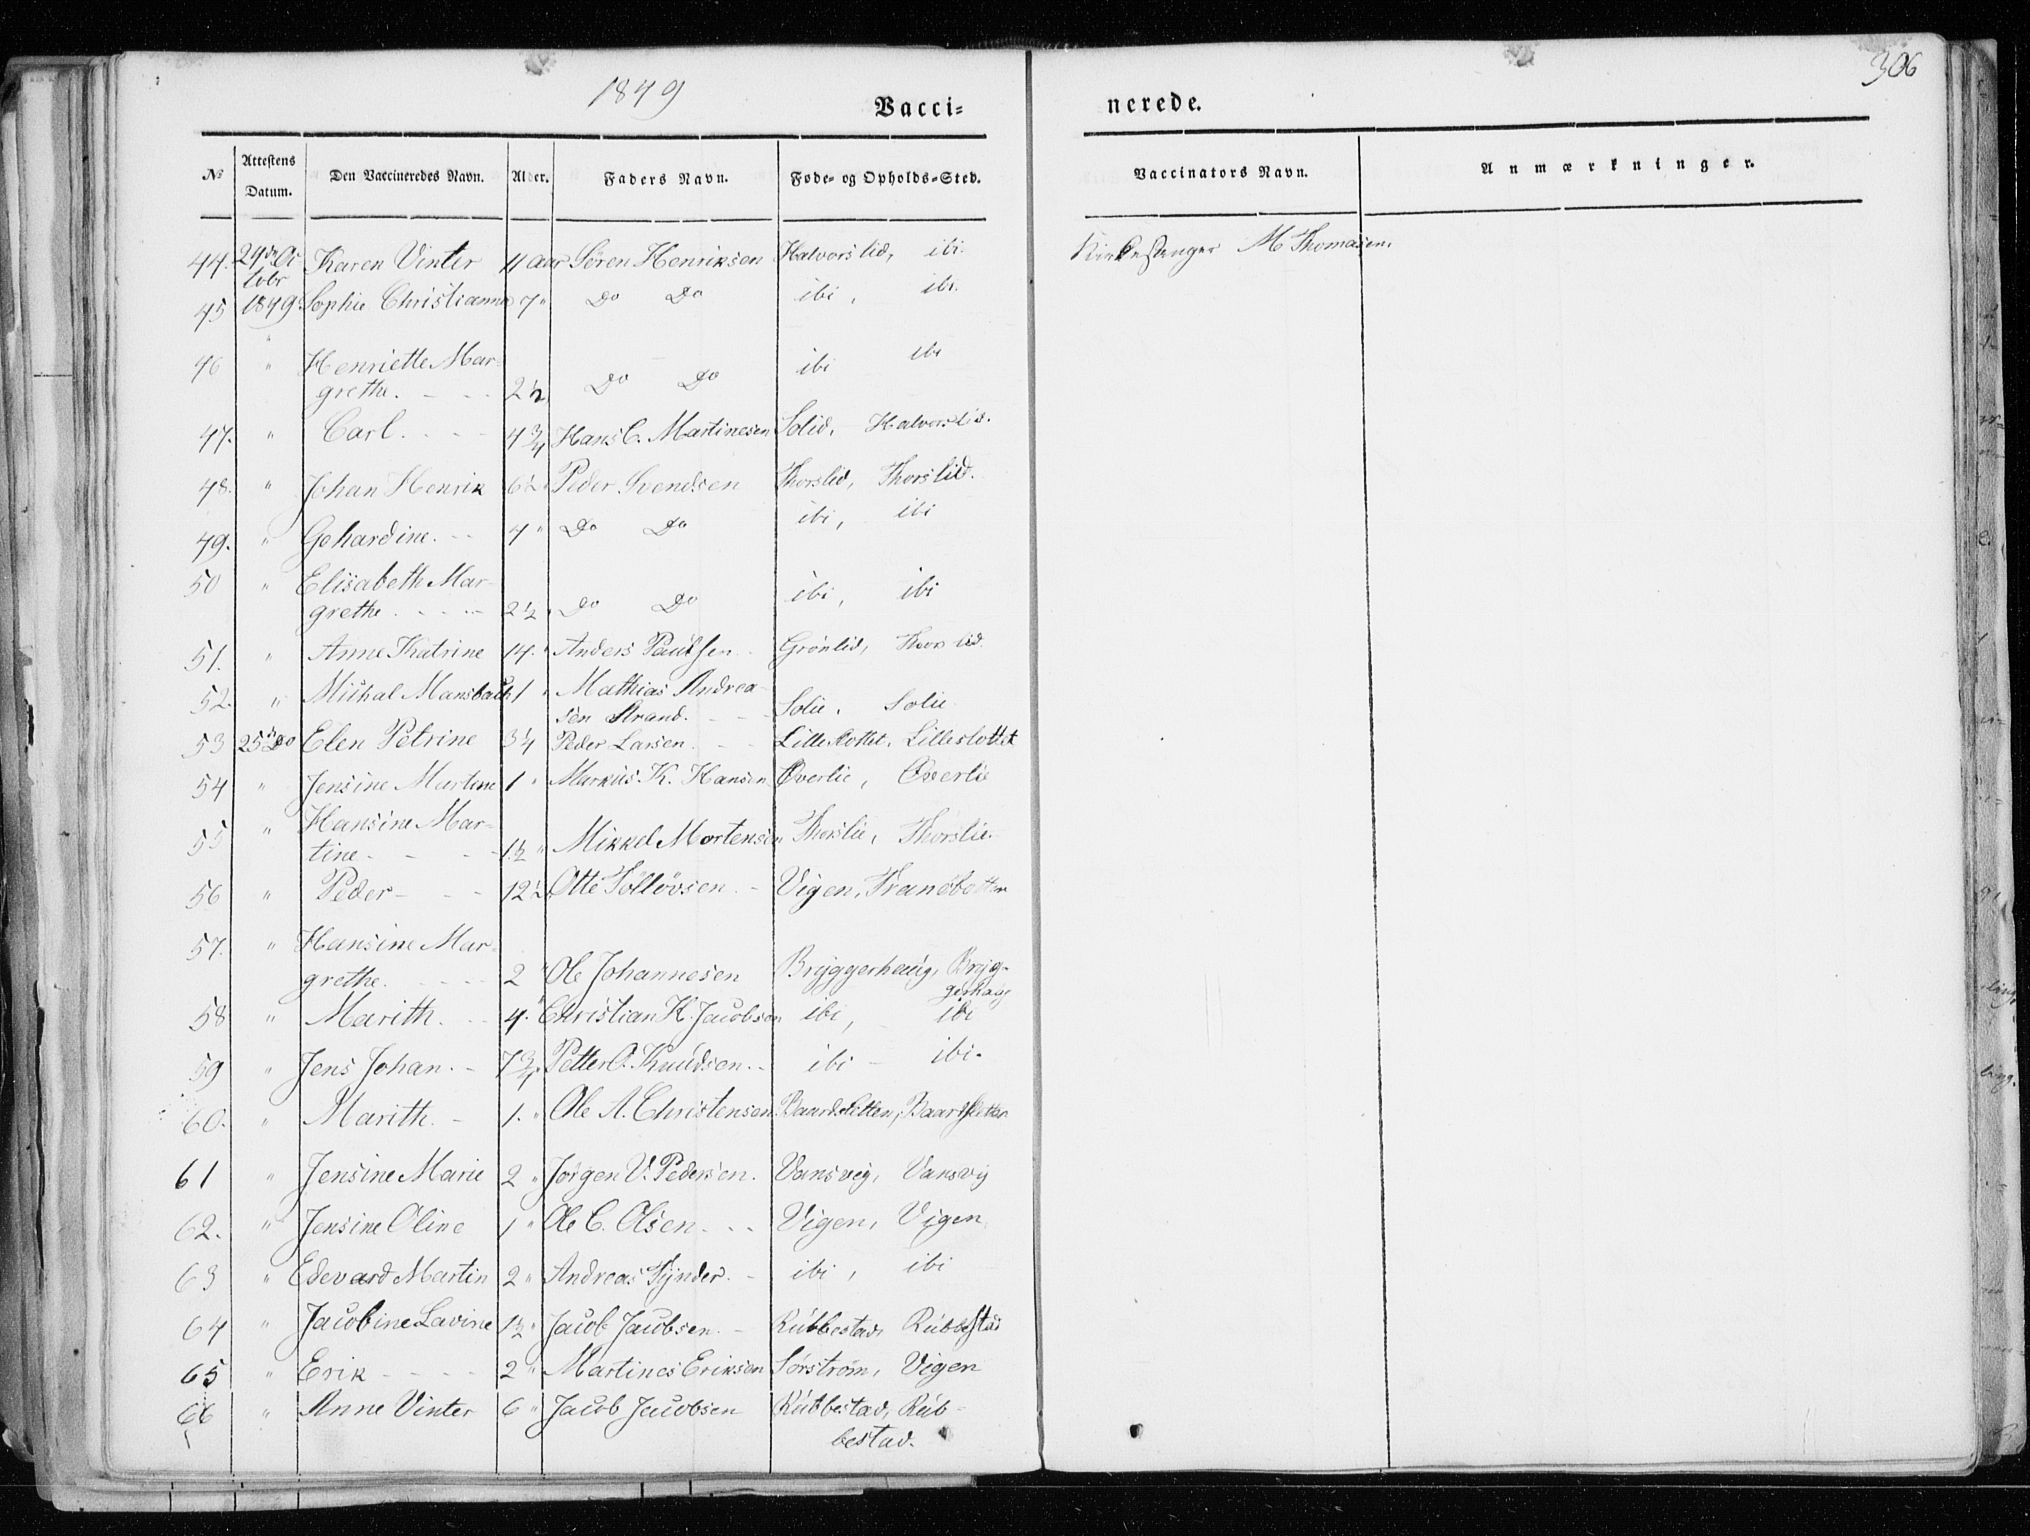 1849
306
Vacci=
nerede.
№ Attestens Datum. Den Vaccineredes Navn. Alder. Faders Navn. Føde- og Opholds-Sted. Vaccinators Navn. Anmærkninger.
44. 24de Oc Karen Vinter 11 aar Søren Henriksen Halvorslid, ibi. Kirkesanger M Thomasen.
tobr
45 1849 Sophie Christianna 7 " Do Do ibi, ibi.
"
46 " Henriette Mar-
grethe. - - - 2 1/2 Do Do ibi ibi
47. " Carl. - - - 4 3/4 Hans C. Martinesen Solid, Halvorslid.
48. " Johan Henrik 6 1/2 Peder Svendsen Thorslid, Thorslid.
49. " Gehardine. - - 4 " Do Do ibi, ibi
50 " Elisabeth Mar-
grethe. - - - - 2 1/2 " Do Do ibi, ibi
51. " Anne Katrine 14. " Anders Paulsen Grønlid, Thorslid
52. " Michal Mansbach 1 " Mathias Andrea-
sen Strand. - - Solie. Solie
53 25de Do Elen Petrine 3 1/4 Peder Larsen. - - Lilleslottet, Lilleslottet
54 " Jensine Martine 1 " Markus K. Hansen Øverlie, Øverlie
55 " Hansine Mar-
tine - - - 1 1/2 " Mikkel Mortensen Thorslie, Thorslie.
56 " Peder - - - 12 1/2 Otte Tølløvsen. - Vigen, Tranøbotten
57. " Hansine Mar-
grethe. - - - - 2 " Ole Johannesen Bryggerhaug, Bryg-
gerhaug
58 " Marith. - - 4. " Christian H. Jacobsen ibi, ibi
59 " Jens Johan. - 7 3/4 Petter O. Knudsen. - ibi - ibi.
60. " Marith. - 1. " Ole A. Christensen Baardsletten, Baardsletten
61 " Jensine Marie 2 " Jørgen V. Pedersen. Vansvig, Vansvig
62. " Jensine Oline 1 " Ole C. Olsen. - - Vigen, Vigen
63 " Edevard Martin 2 " Andreas Tynder. - ibi, ibi
64 " Jacobine Lavine 1 1/2 " Jacob Jacobsen. - Rubbestad, Rubbestad
65 " Erik - - - - 2 " Martines Eriksen Sørstrøm, Vigen
66 " Anne Vinter 6 " Jacob Jacobsen Rubbestad, Rub-
bestad.